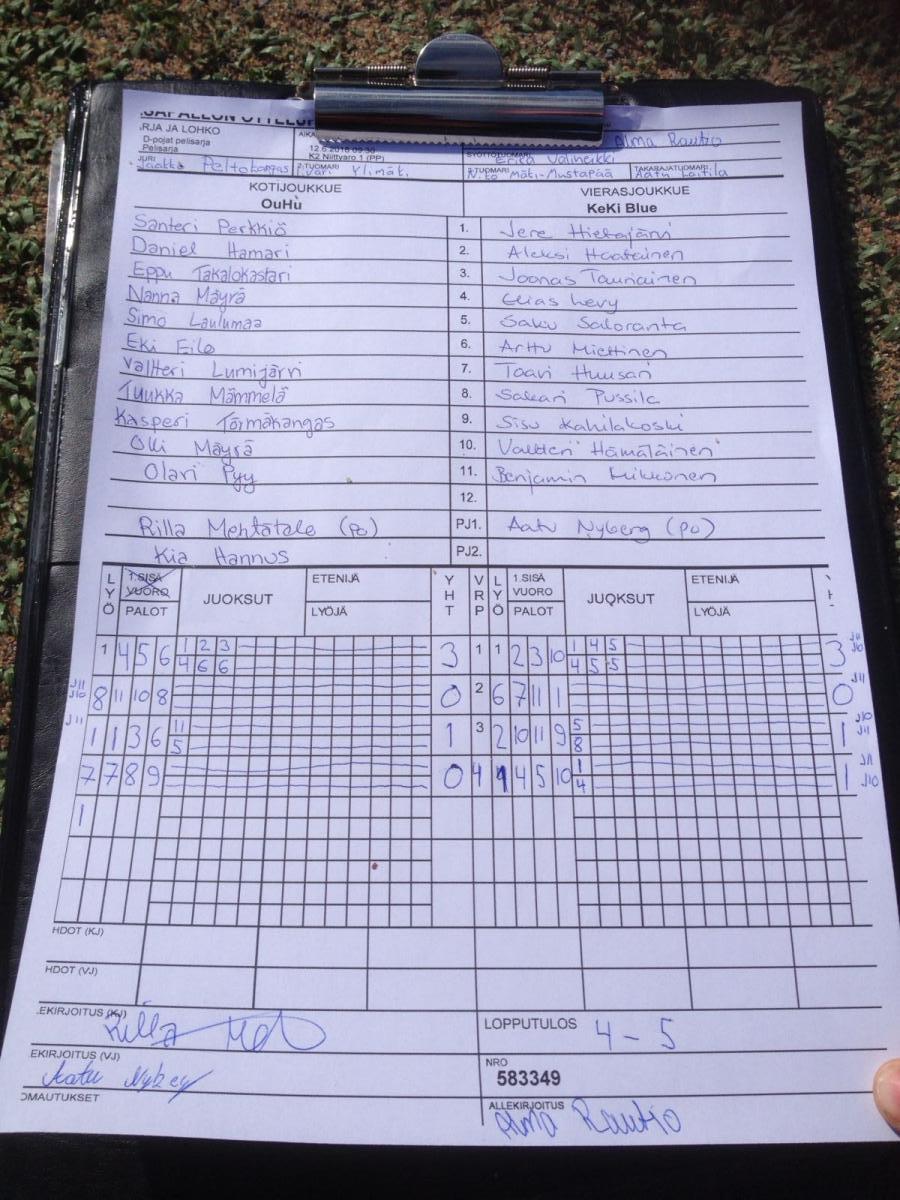 RJA JA LOHKO
D-pojat pelisarja
Pelisarja
12.6.2016 09:30
K2 Niittvaro 1 (PP)
Alma Rautio
SYÖTTÖTUOMARI
Erkä Välineikki
JURI
Jaakko Peltokangas
2-TUOMARI
Ylimäki
3-TUOMARI
Mäki-Mustapää
TAKARAJATUOMARI
Aatu Laitila
KOTIJOUKKUE VIERASJOUKKUE
OuHu KeKi Blue
Santeri Perkkiö 1. Jere Hietajärvi
Daniel Hamari 2. Aleksi Haatainen
Eppu Takalokastari 3. Joonas Tauriainen
Nanna Mäyrä 4. Elias Levy
Simo Laulumaa 5. Saku Saloranta
Eki Eilo 6. Arttu Miettinen
Valtteri Lumijärvi 7. Taavi Huusari
Tuukka Mämmelä 8. Sakari Pussila
Kasperi Törmäkangas 9. Sisu Kahilakoski
Olli Mäyrä 10. Valtteri Hämäläinen
Olavi Pyy 11. Benjamin Mikkonen
12.
Rilla Mehtätalo (po) PJ1. Aatu Nyberg (po)
Kia Hannus PJ2.
LYÖ 1.SISÄ VUORO PALOT JUOKSUT ETENIJÄ LYÖJÄ YHT VRP LYÖ 1.SISÄ VUORO PALOT JUOKSUT ETENIJÄ LYÖJÄ
1 4 5 6 1 2 3 3 1 1 2 3 10 1 4 5 3 J11 J10
4 6 6 4 5 5
J11 J10 8 11 10 8 0 2 6 7 11 1 0 J11
J11 1 1 3 6 11 1 3 2 10 11 9 5 1 J10 J11
5 8
7 7 8 9 0 4 1 4 5 10 1 1 J11 J10
4
1
HDOT (KJ)
HDOT (VJ)
EKIRJOITUS (KJ) Rilla LOPPUTULOS 4 - 5
EKIRJOITUS (VJ) Aatu Nyberg NRO 583349
OMAUTUKSET ALLEKIRJOITUS Alma Rautio